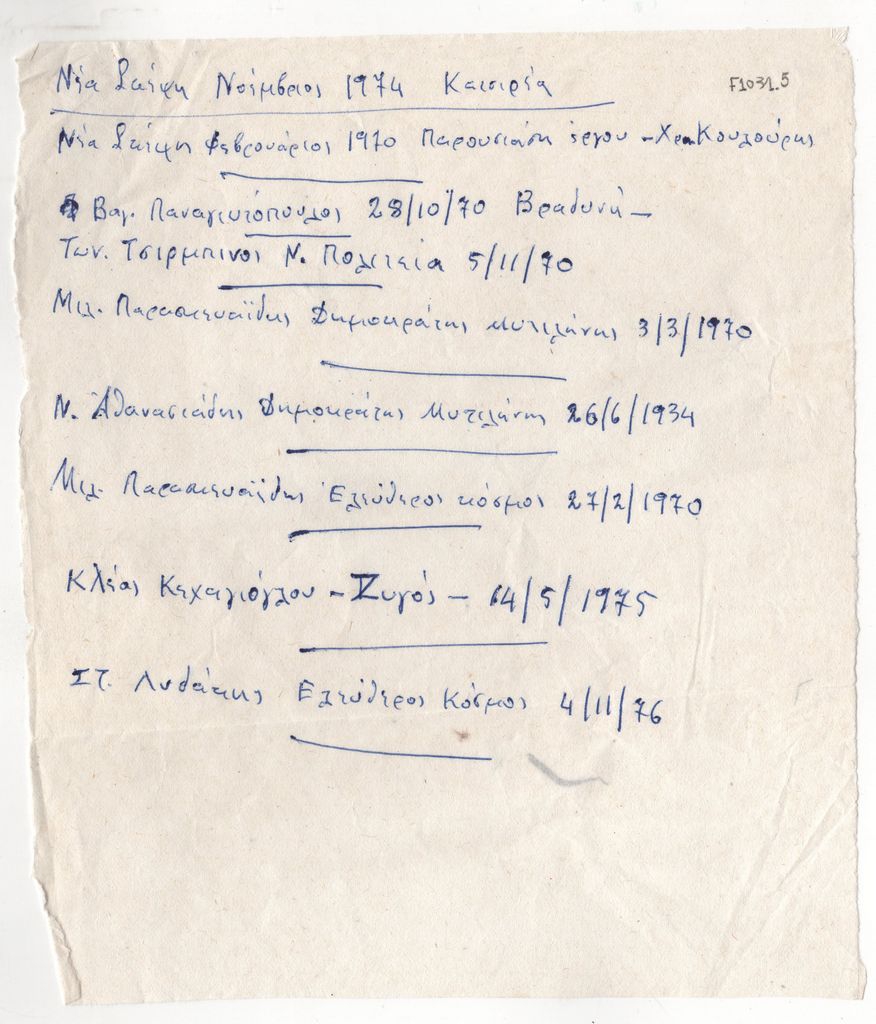 F1031.5
Νέα Σκέψη Νοέμβριος 1974
Νέα Σκέψη Φεβρουάριος 1970 Παρουσίαση έργου - Κουλούρης
Βαγ. Παναγιωτόπουλος 28/10/70 Βραδυνή -
Των. Τσιρμπίνος Ν. Πολιτεία 5/11/70
Μιλ. Παρασκευαΐδης Δημοκράτης Μυτιλήνης 3/3/1970
Ν. Αθανασιάδης Δημοκράτης Μυτιλήνης 26/6/1934
Μιλ. Παρασκευαΐδης Ελεύθερος κόσμος 27/2/1970
Κλέας Κεχαγιόγλου - Ζυγός - 14/5/1975
Στ. Λυδάκης Ελεύθερος Κόσμος 4/11/76